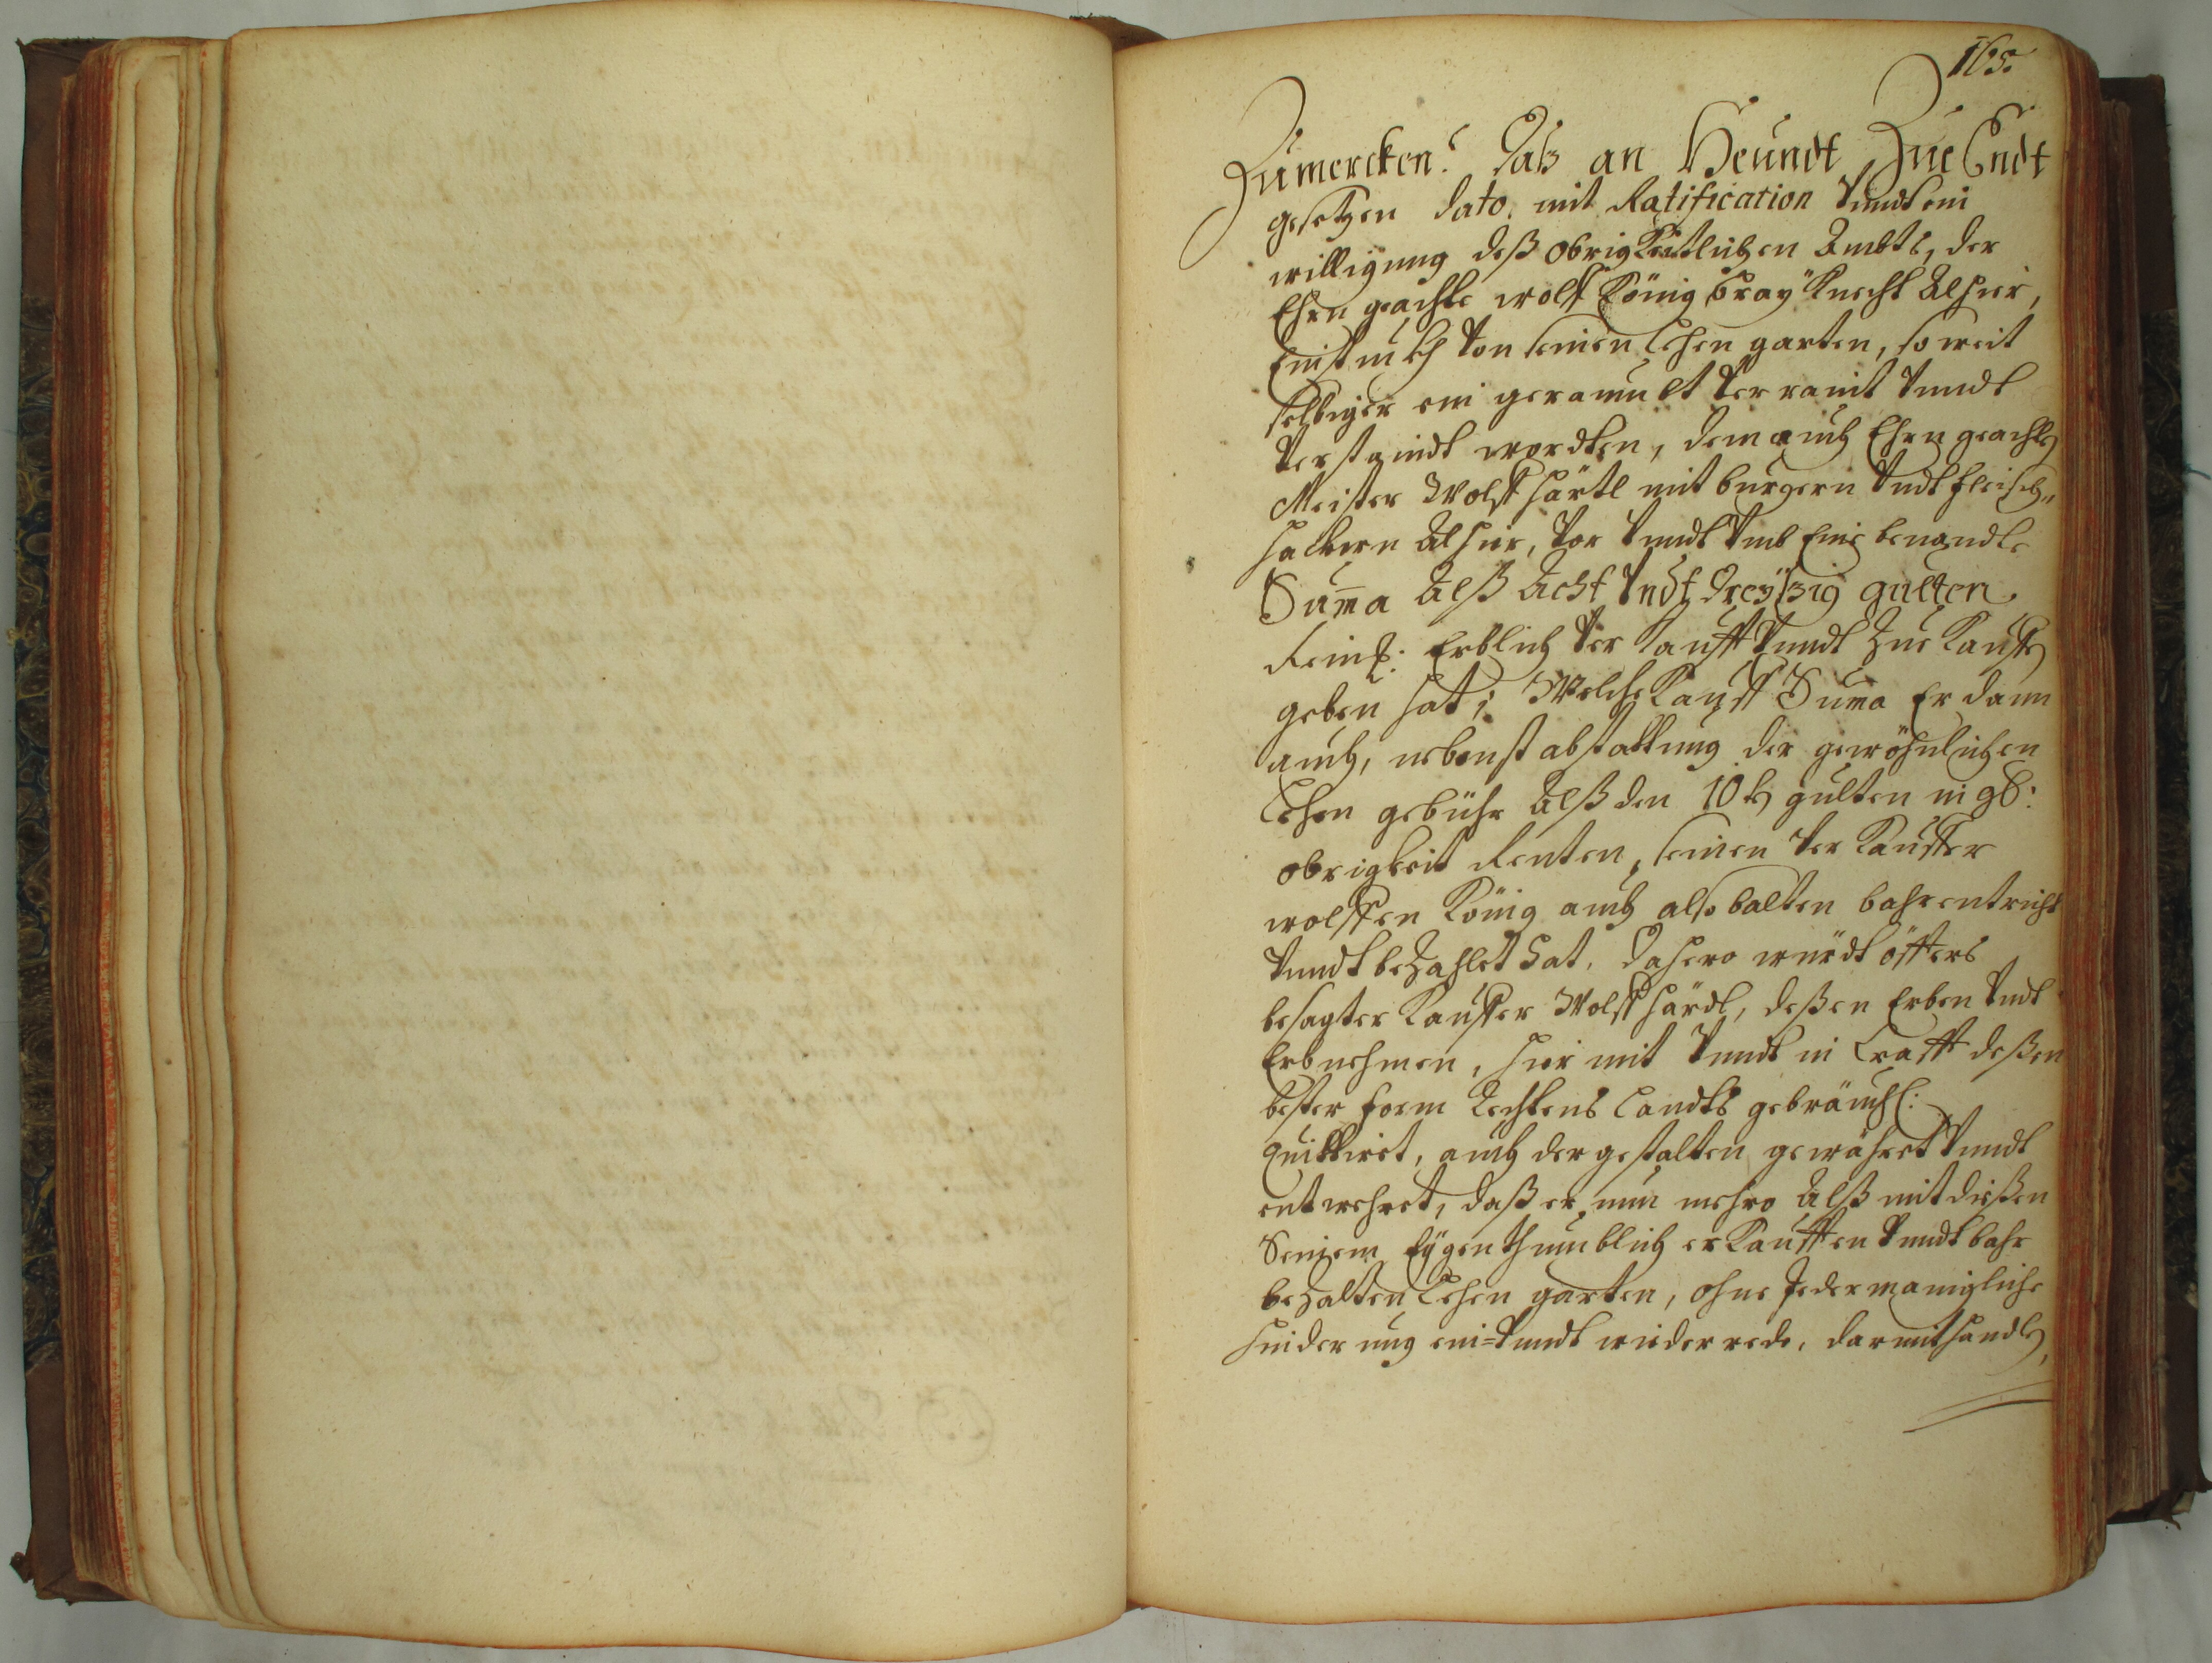 165.
Zumercken. Daß an Heundt Zue Endt
gesetzen dato. mit Ratification Vnndt ein
willigung deß obrigkeitlichen Ambts, der
Ehrn geachte wolff König bray Knecht Alhier,
Ein stuckh Von seinen Lehen garten, so weit
selbiger ein geraumbt Ver raint Vnndt
Verstaindt wordten, dem auch Ehrn geachten
Meister Wolff härtl mit burgern Vndt fleisch„
hackern Alhier, Vor Vnndt Vmb Eine benandte
Suma Alß Acht Vndt dreyßzig gulten
Reinl: Erblich Ver Kaufft Vnndt Zue Kauffen
geben hat; Welche Kauff Suma Er dann
auch, nebenst abstattung der gewöhnlichen
Lehen gebühr Alß den 10 tn gulten in gd:
obrigkeit Renten, seinen Ver Kauffer
wolffen König auch also balten bahr entricht
Vnndt beZahlet hat, dahero würdt öffters
besagter Kauffer Wolff härdl, deßen Erben Vndt
Erbnehmen, hier mit Vnndt in Crafft deßen
bester form Rechtens Landts gebräuchl:
quittiret, auch der gestalten gewähret Vnndt
entwehret, daß er nun mehro Alß mit dießen
Seinem Eygenthumblich erKaufften Vnndt bahr
beZalten Lehen garten, ohne Jedermanigliche
hinderung ein= Vnndt wiederrede, darmit handlen,